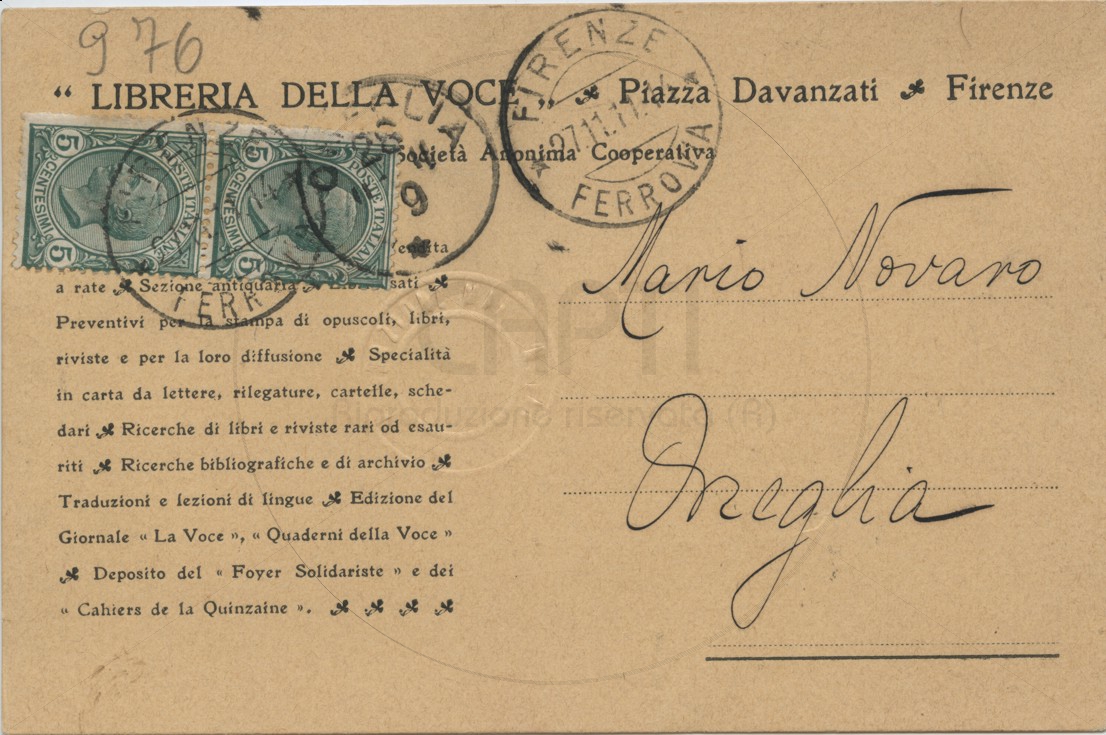 976
“ LIBRERIA DELLA VOCE „ Piazza Davanzati Firenze
Società Anonima Cooperativa
FIRENZE
27.11.11
FERROVIA
5 CENTESIMI 5
POSTE ITALIANE
5 CENTESIMI 5
POSTE ITALIANE
FERR
a rate Sezione antiquaria
Preventivi per la stampa di opuscoli, libri,
riviste e per la loro diffusione Specialità
in carta da lettere, rilegature, cartelle, sche-
dari Ricerche di libri e riviste rari od esau-
riti Ricerche bibliografiche e di archivio
Traduzioni e lezioni di lingue Edizione del
Giornale « La Voce », « Quaderni della Voce »
Deposito del « Foyer Solidariste » e dei
« Cahiers de la Quinzaine ».
Mario Novaro
Oneglia
Riproduzione riservata (R)